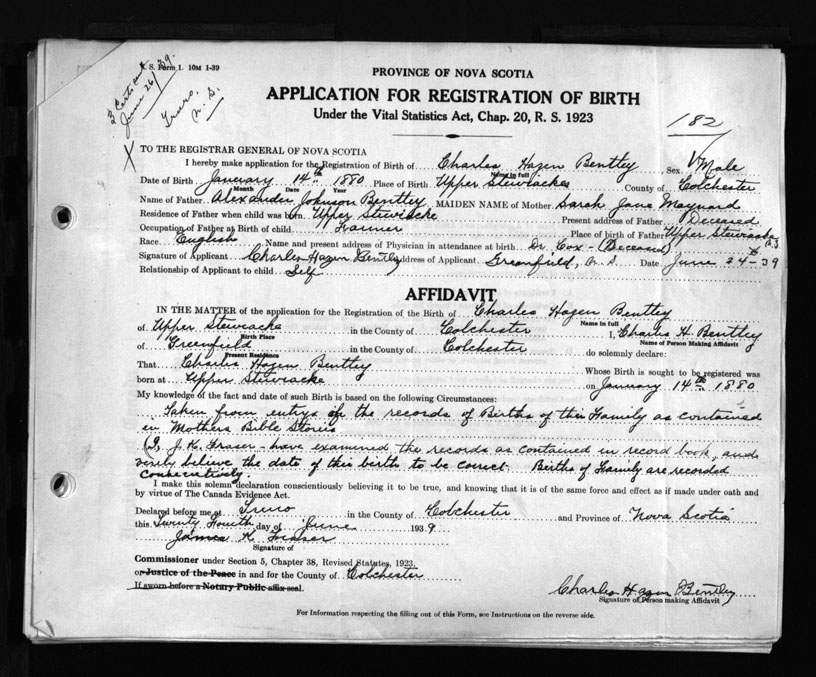 V. S. Form 1. 10M 1-39
June 26/39.
Truro,
N. S.
PROVINCE OF NOVA SCOTIA
APPLICATION FOR REGISTRATION OF BIRTH
Under the Vital Statistics Act, Chap. 20, R. S. 1923
182
X TO THE REGISTRAR GENERAL OF NOVA SCOTIA
I hereby make application for the Registration of Birth of Charles Hazen Bentley Sex Male
Name in full
Date of Birth January 14th 1880 Place of Birth Upper Stewiacke County of Colchester
Month Date Year
Name of Father Alexander Johnson Bentley MAIDEN NAME of Mother Sarah Jane Maynard
Residence of Father when child was born Upper Stewiacke Present address of Father Deceased
Occupation of Father at Birth of child Farmer Place of birth of Father Upper Stewiacke N.S
Race English Name and present address of Physician in attendance at birth Dr. Cox - (Deceased)
Signature of Applicant Charles Hazen Bentley Address of Applicant Greenfield, N. S. Date June 24th - 39
Relationship of Applicant to child Self
AFFIDAVIT
IN THE MATTER of the application for the Registration of the Birth of Charles Hazen Bentley
Name in full
of Upper Stewiacke in the County of Colchester I, Charles H. Bentley
Birth Place Name of Person Making Affidavit
of Greenfield in the County of Colchester do solemnly declare:
Present Residence
That Charles Hazen Bentley Whose Birth is sought to be registered was
born at Upper Stewiacke on January 14th 1880
My knowledge of the fact and date of such Birth is based on the following Circumstances:
Taken from entry in the records of Births of this Family as contained
in Mothers Bible Stories
(I, J. K. Fraser - have examined the records as contained in record book, and
verily believe the date of this birth to be correct. Births of Family are recorded
consecutively.
I make this solemn declaration conscientiously believing it to be true, and knowing that it is of the same force and effect as if made under oath and
by virtue of The Canada Evidence Act.
Declared before me at Truro in the County of Colchester and Province of Nova Scotia
this Twenty Fourth day of June 1939
James K. Fraser
Signature of
Commissioner under Section 5, Chapter 38, Revised Statutes, 1923,
or Justice of the Peace in and for the County of Colchester
If sworn before a Notary Public affix seal.
Charles Hazen Bentley
Signature of Person making Affidavit
For Information respecting the filling out of this Form, see Instructions on the reverse side.